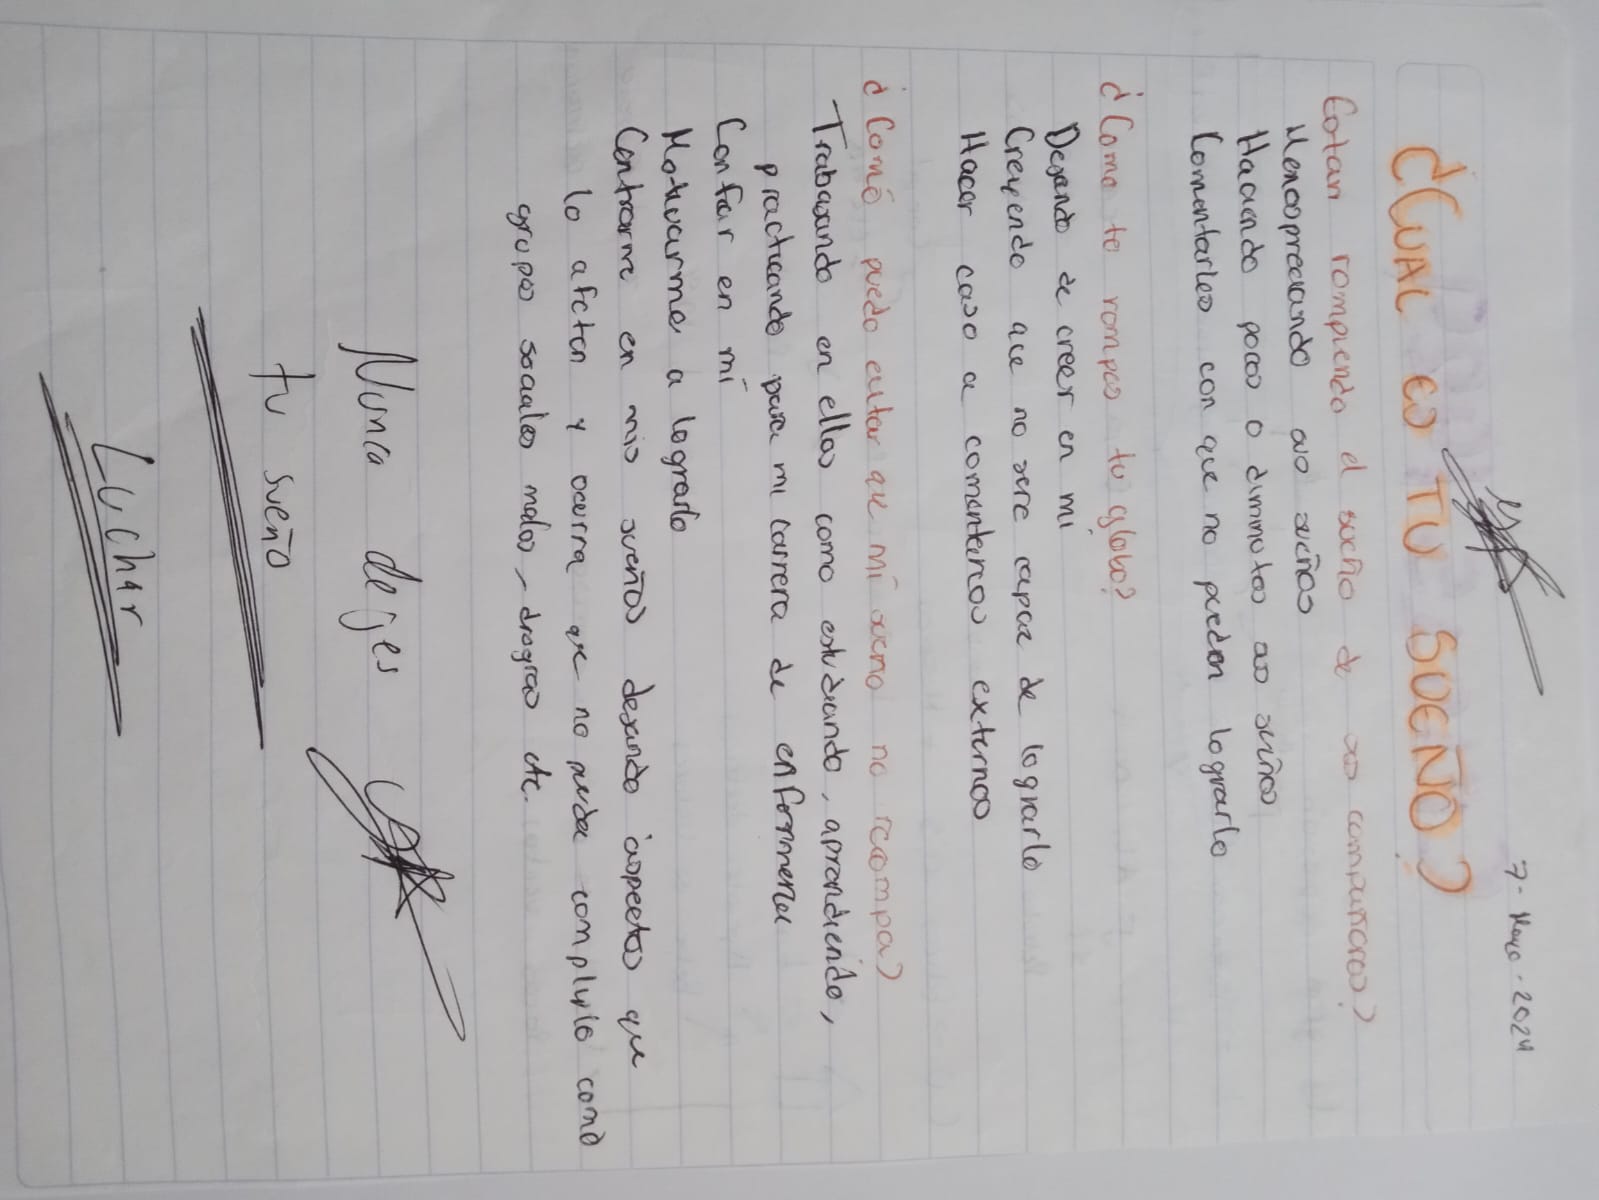 7- Mayo - 2024
¿CUAL ES TU SUEÑO?
Estan rompiendo el sueño de sus compañeros?
Menospreciando sus sueños
Haciendo pocos o diminutos sus sueños
Comentarles con que no pueden lograrlo
¿Como te rompes tu globo?
Dejando de creer en mi
Creyendo que no sere capaz de lograrlo
Hacer caso a comentarios externos
¿Comó puedo evitar que mi sueño no rompa?
Trabajando en ellos como estudiando, aprendiendo,
practicando para mi carrera de enfermeria
Confiar en mí
Motivarme a lograrlo
Centrarme en mis sueños dejando aspectos que
lo afcten y ocurra que no pueda complirlo como
grupos sociales malos, drogras etc.
Nunca dejes
tu sueño
Luchar